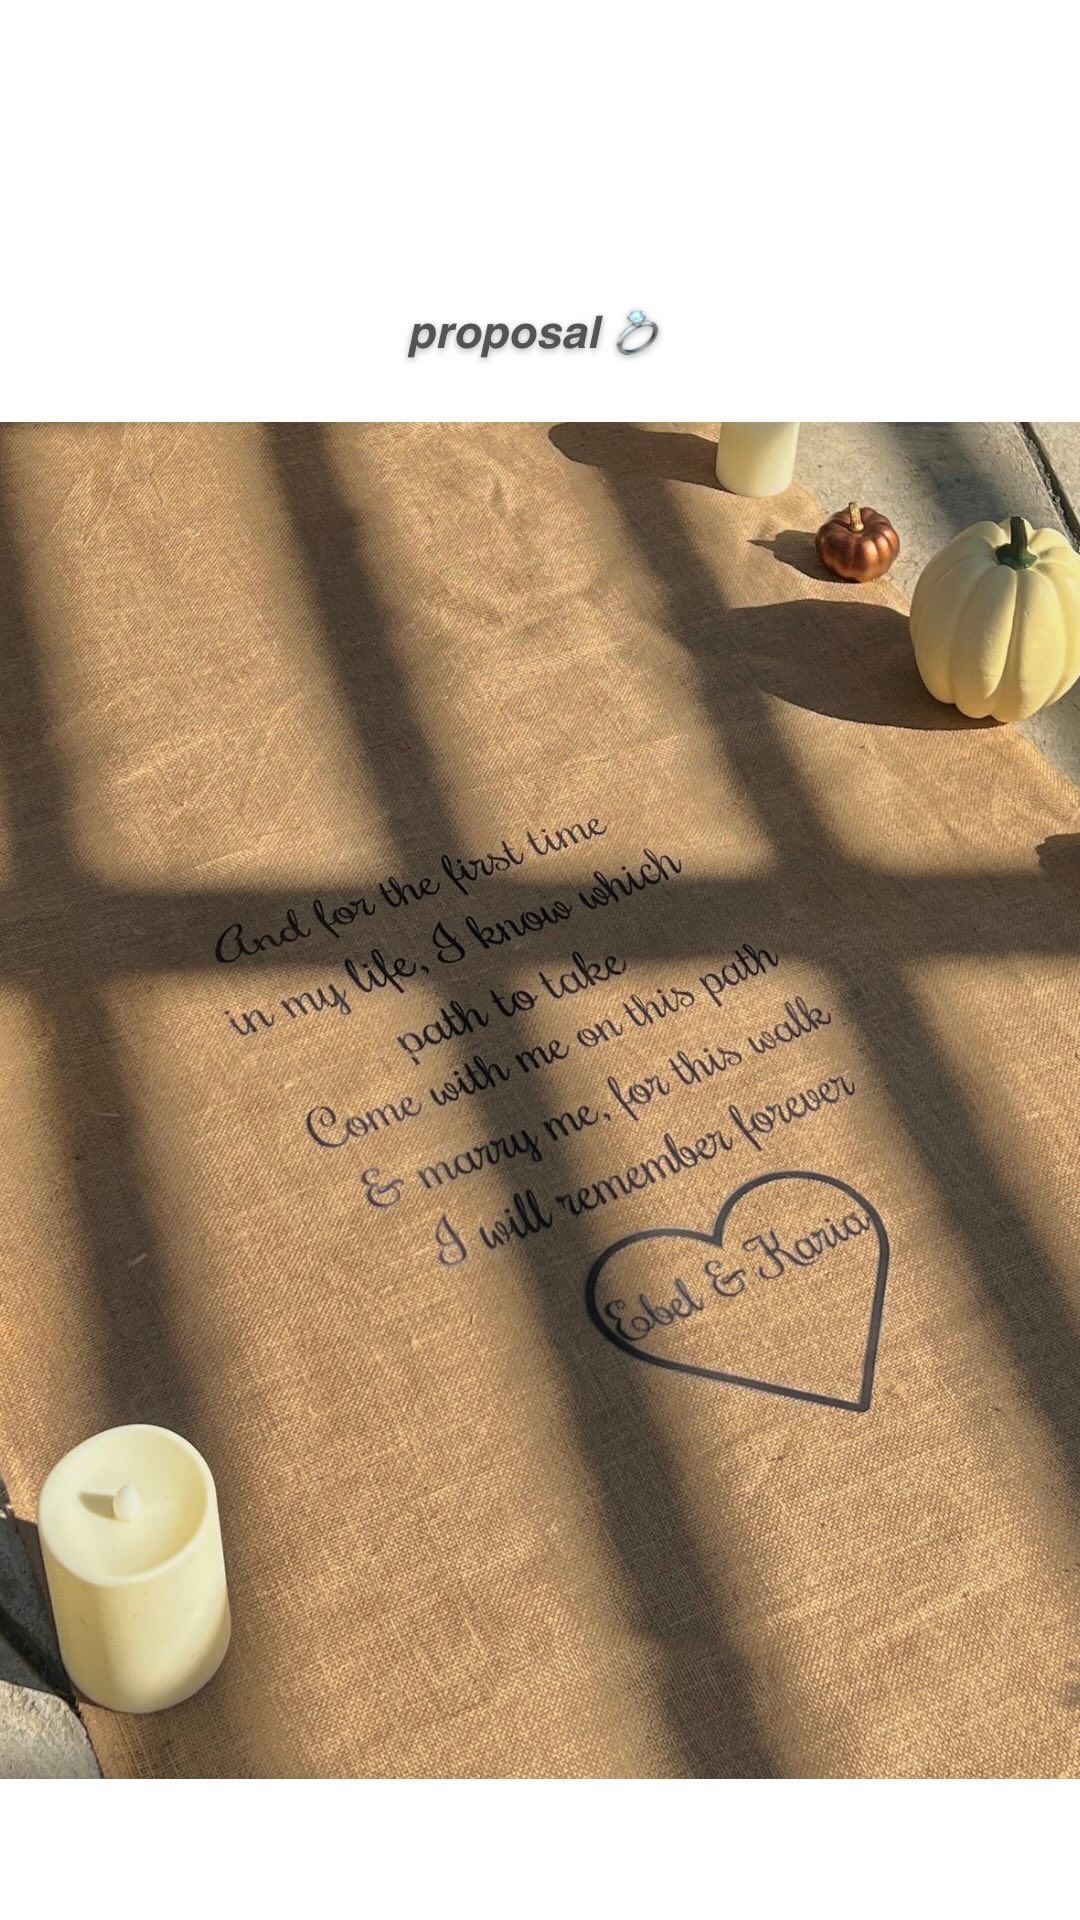 proposal 💍
And for the first time
in my life, I know which
path to take
Come with me on this path
& marry me, for this walk
I will remember forever
Ebel & Karia